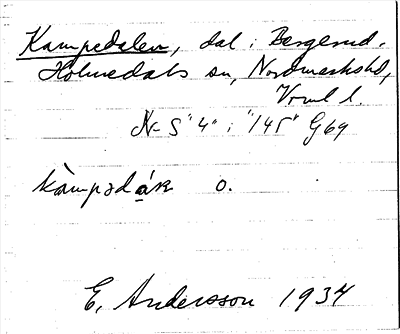 Kampedalen, dal i Bergerud.
Holmedals sn, Nordmarkshd,
Vrml l.
N-S "4" i "145" G69
kàmpədáɴ o.
E. Andersson 1934